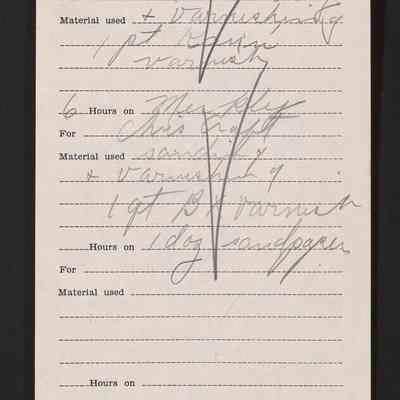 Material used + varnishing
1 pt
varnish
6 Hours on
For Chris Craft
Material used sanding
+ varnishing
1 qt B varnish
Hours on 1 doz sandpaper
For
Material used
Hours on